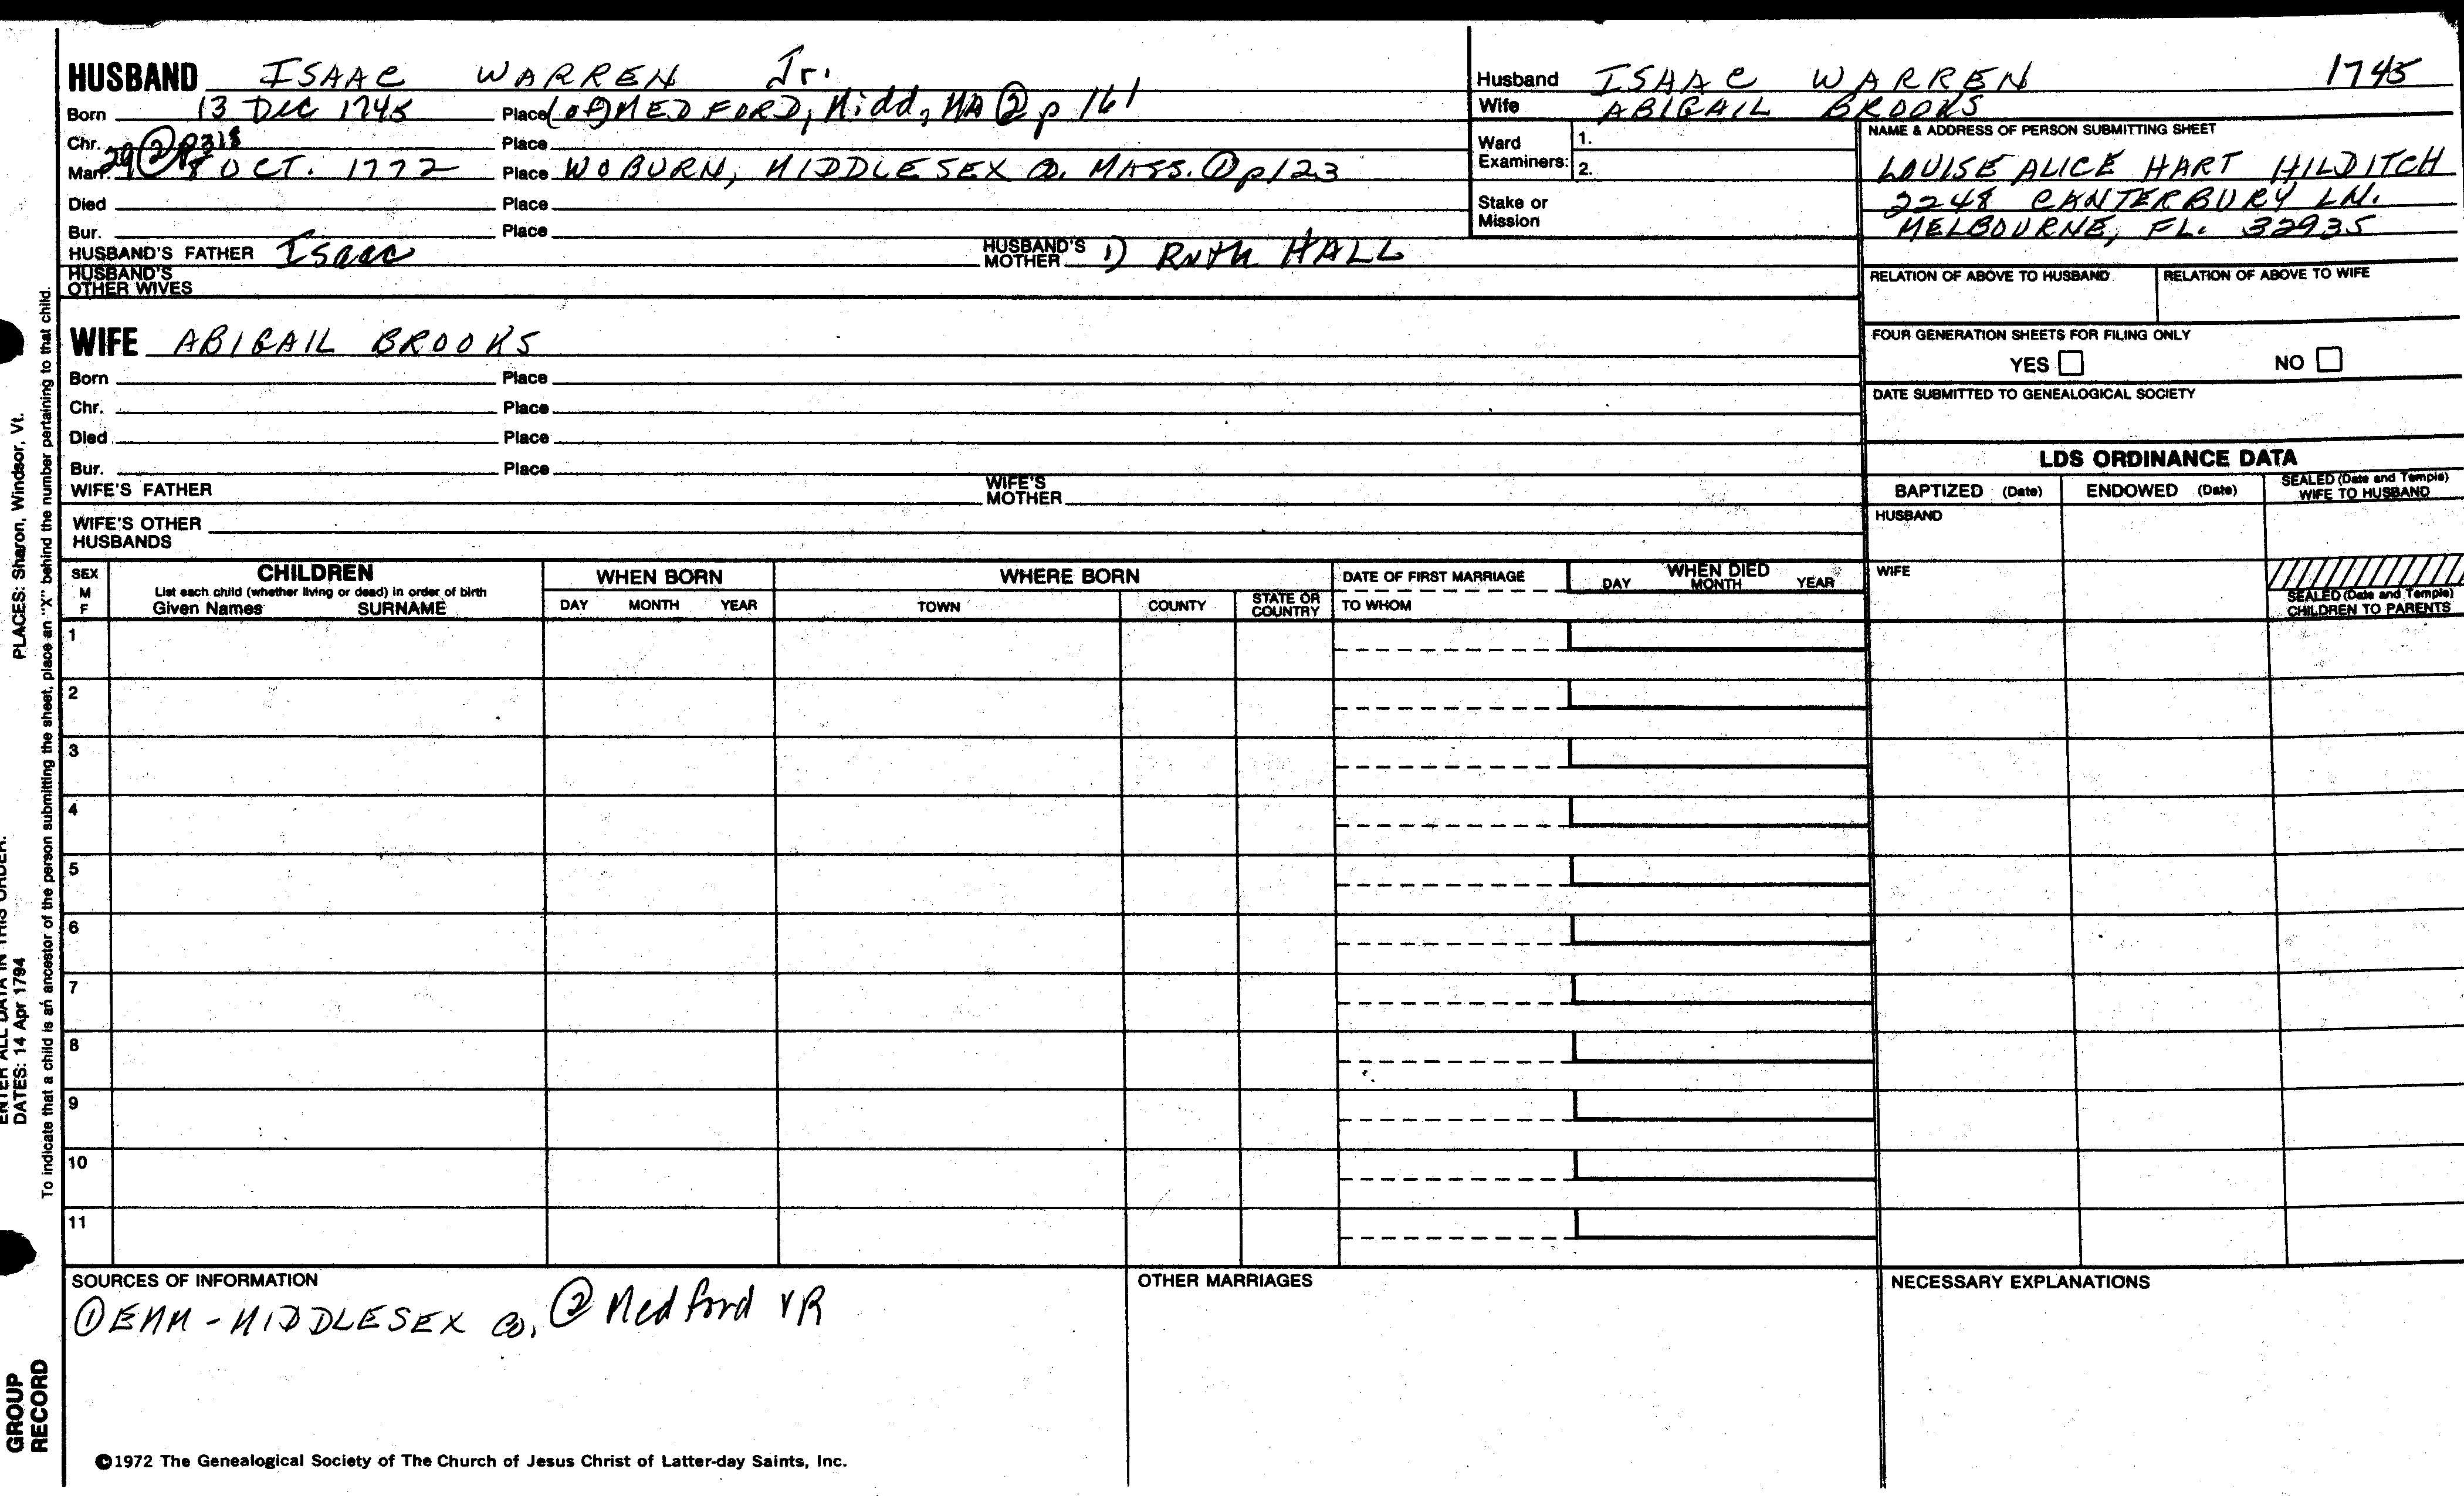 HUSBAND ISAAC WARREN Jr.
Born 13 DEC 1745 Place (of) MEDFORD, Midd, MA ② p 161
Chr. Place
29 ② p318
Marr. 8 OCT. 1772 Place WOBURN, MIDDLESEX CO. MASS. ① p123
Died Place
Bur. Place
HUSBAND'S FATHER Isaac HUSBAND'S MOTHER 1) RUTH HALL
HUSBAND'S OTHER WIVES
Husband ISAAC WARREN 1745
Wife ABIGAIL BROOKS
Ward Examiners: 1.
2.
Stake or Mission
NAME & ADDRESS OF PERSON SUBMITTING SHEET
LOUISE ALICE HART HILDITCH
2248 CANTERBURY LN.
MELBOURNE, FL. 32935
RELATION OF ABOVE TO HUSBAND RELATION OF ABOVE TO WIFE
FOUR GENERATION SHEETS FOR FILING ONLY
YES NO
DATE SUBMITTED TO GENEALOGICAL SOCIETY
WIFE ABIGAIL BROOKS
Born Place
Chr. Place
Died Place
Bur. Place
WIFE'S FATHER WIFE'S MOTHER
WIFE'S OTHER HUSBANDS
LDS ORDINANCE DATA
BAPTIZED (Date) ENDOWED (Date) SEALED (Date and Temple) WIFE TO HUSBAND
HUSBAND
WIFE
SEALED (Date and Temple) CHILDREN TO PARENTS
SEX M F
CHILDREN
List each child (whether living or dead) in order of birth
Given Names SURNAME
WHEN BORN
DAY MONTH YEAR
WHERE BORN
TOWN COUNTY STATE OR COUNTRY
DATE OF FIRST MARRIAGE
TO WHOM
WHEN DIED
DAY MONTH YEAR
1
2
3
4
5
6
7
8
9
10
11
SOURCES OF INFORMATION
① EMM - MIDDLESEX CO, ② Medford VR
OTHER MARRIAGES
NECESSARY EXPLANATIONS
©1972 The Genealogical Society of The Church of Jesus Christ of Latter-day Saints, Inc.
ENTER ALL DATA IN THIS ORDER:
DATES: 14 Apr 1794 PLACES: Sharon, Windsor, Vt.
To indicate that a child is an ancestor of the person submitting the sheet, place an "X" behind the number pertaining to that child.
GROUP
RECORD